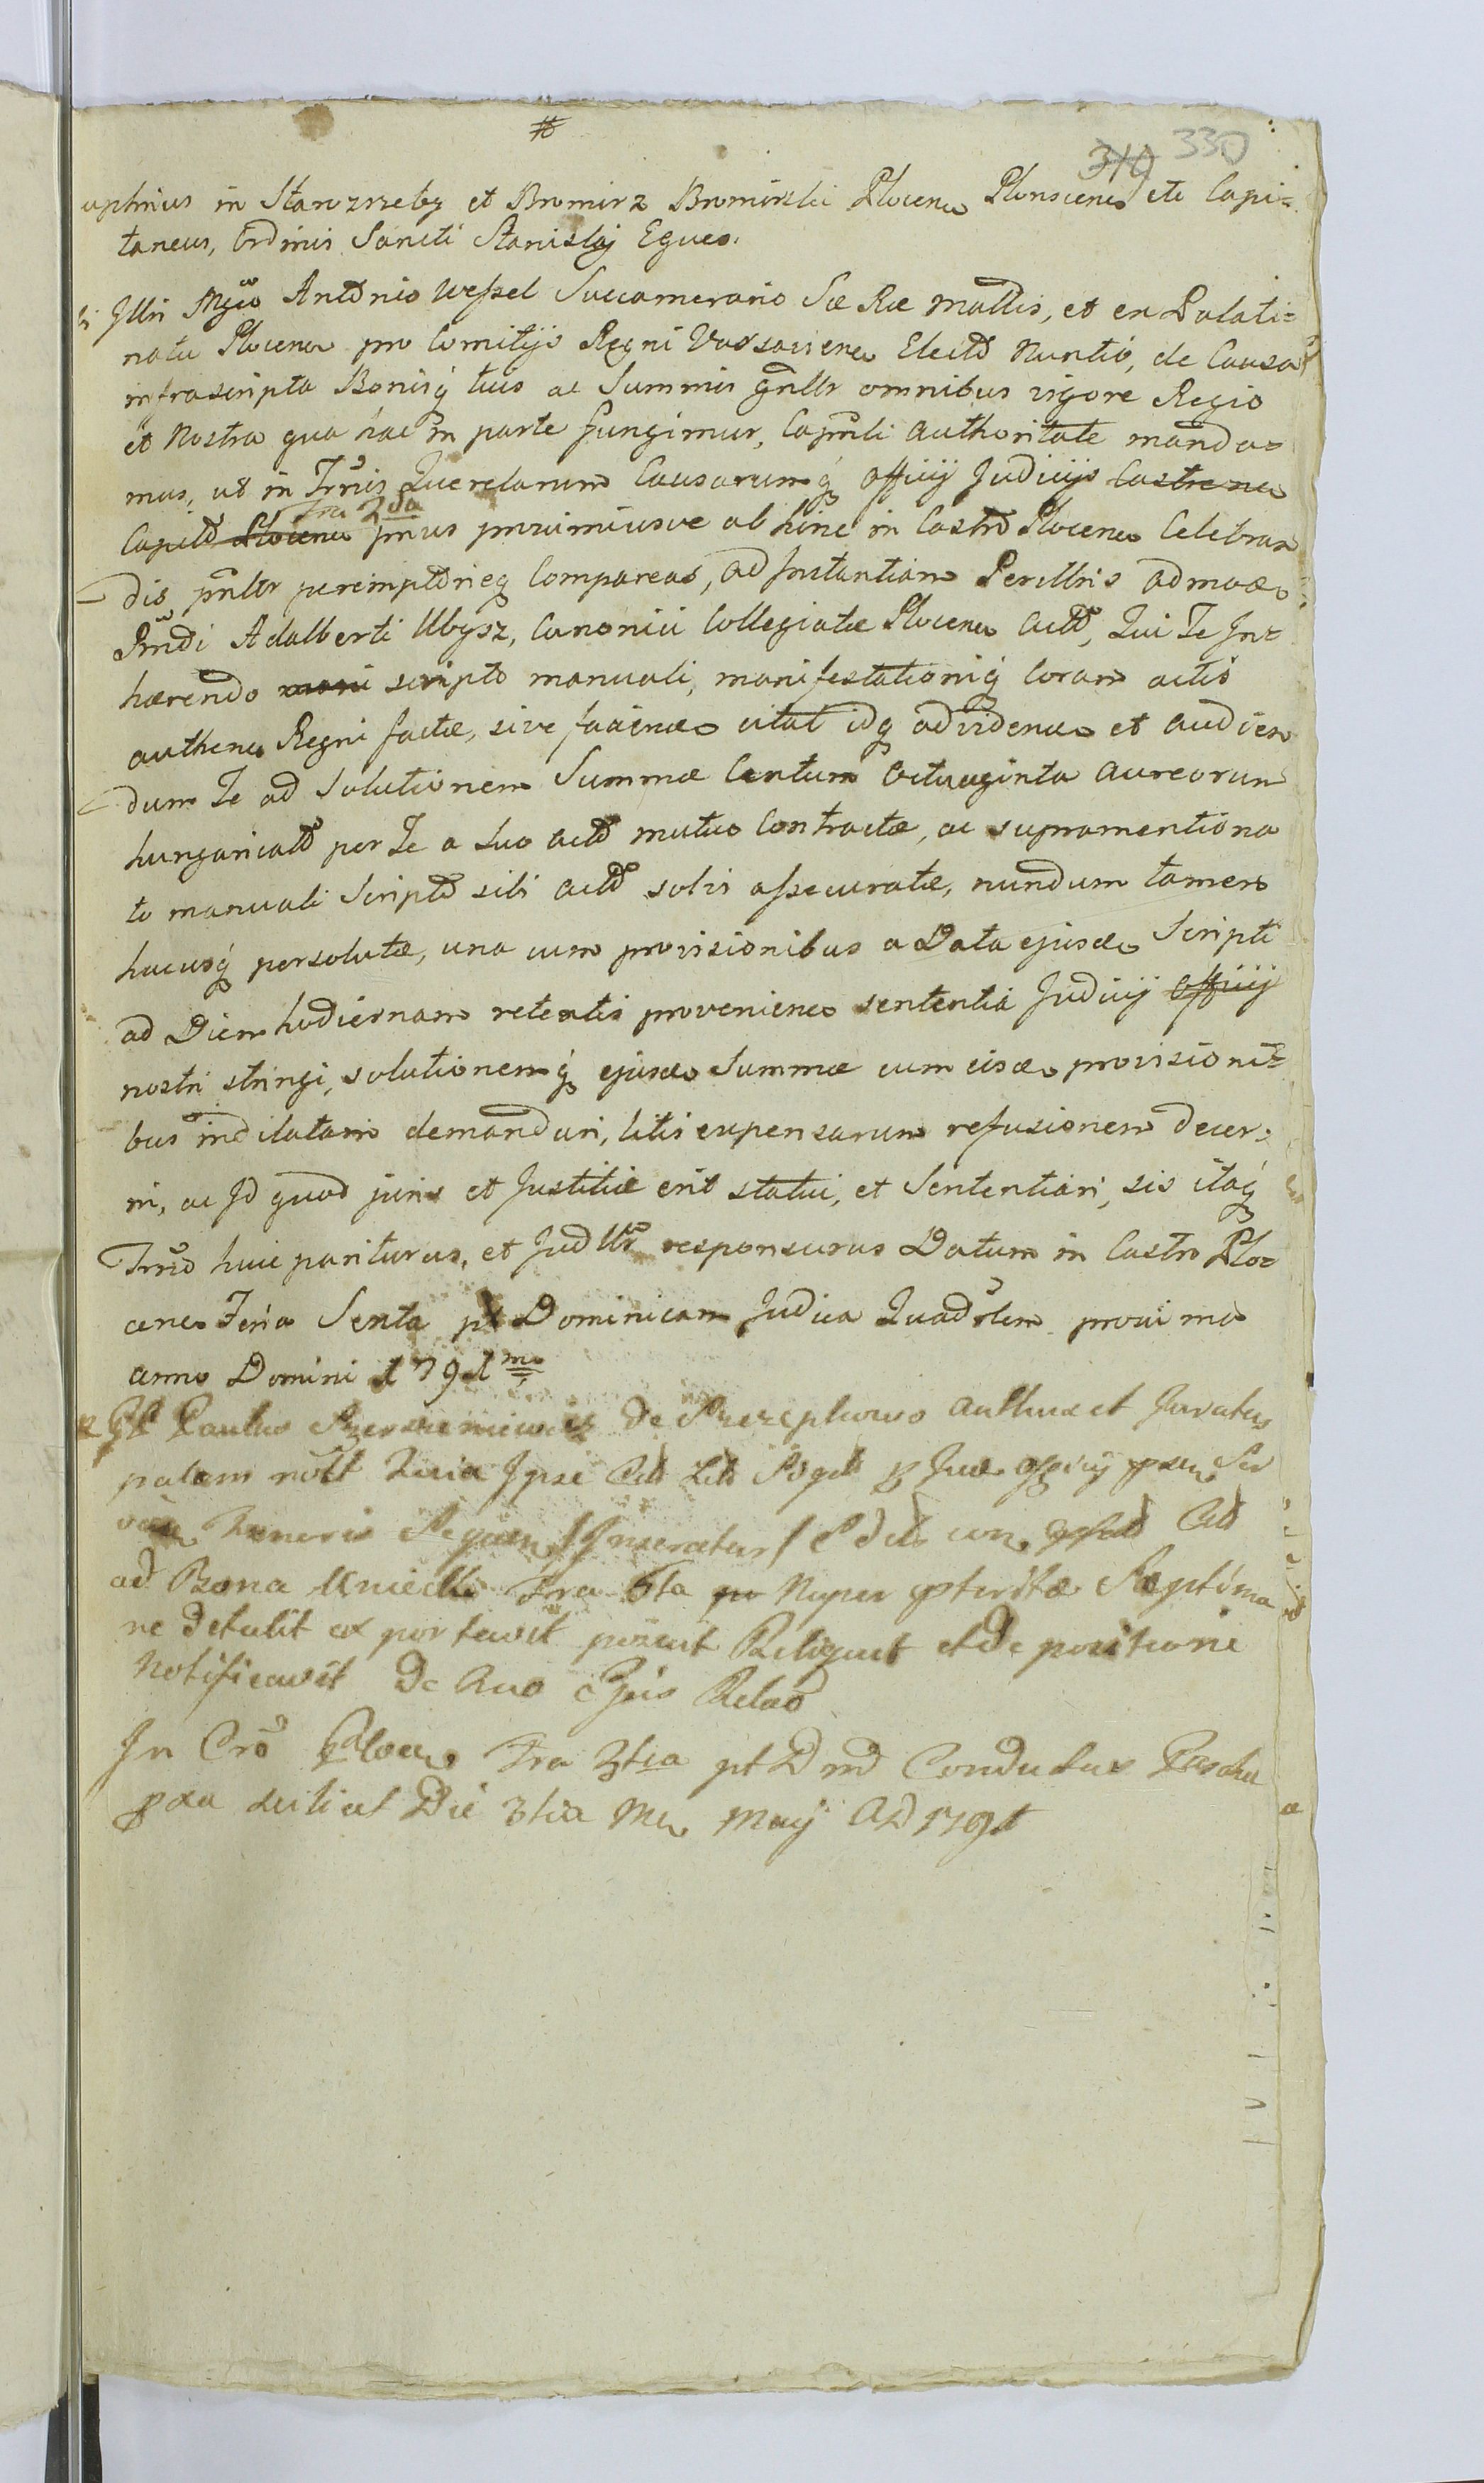 #
310 330
uphrius in Starozrzeby et Bromirz Bromirski Plocen Plonscen etc Capi=
taneus, Ordinis Sancti Stanislaj Eques.
Illri Mgco Antonio Wessel Succamerario Sae Rae Mattis, et ex Palati=
natu Plocen pro Comitijs Regni Varsavien Electo Nuntio, de Causa
infrascripta Bonisq tuis ac Summis gnllr omnibus vigore Regio
et Nostra qua hac in parte fungimur, Capnli authoritate manda=
mus, ut in Trnis Querelarum Causarumq officij Judicijs Castren
Fra 2da
Capitt Plocen pnus proximiusve ab hinc in Castro Plocen Celebran
dis pnltr peremptorieq Compareas, ad Instantiam Perillris admo
Rndi Adalberti Ubysz, Canonici Collegiatae Plocen Actt, Qui Te In=
haerendo mani scripto manuali, manifestationiq Coram actis
authen Regni factae, sive faciendae citat idq ad viden et audien
dum Te ad Solutionem Summae Centum Octuaginta Aureorum
hungaricall per Te a suo actt mutuo Contractae, ac supramentiona
to manuali Scripto sibi actt solvi assecuratae, nundum tamen
hucusq persolutae, una cum provisionibus a Data ejusd Scripti
ad Diem hodiernam retentis provenien sententia Judicij officij
nostri stringi, solutionemq ejusd Summae cum eisd provisioni=
bus indilatam demandari, litis expensarum refusionem decer=
ni, ac Id quod juris et Justitiae erit statui, et Sententiari, sis itaq
Trno huic pariturus, et Judllr responsurus Datum in Castro Plo=
cen Feria Sexta pt Dominicam Judica Quadrlem proxima
anno Domini 1791mo
Paulus de authen et Juratus
palam Ipse officij
ad Bona Fra 6ta po Nuper ptritae Septima
ne detulit ex portavit posuit Reliquit et de positione
Notificavit De Quo Ejus Relao
In Cro Plocen Fra 3tia pt Dnd Conductus Pascha
pxa scilicet Die 3tia Mes Maij AD 1791